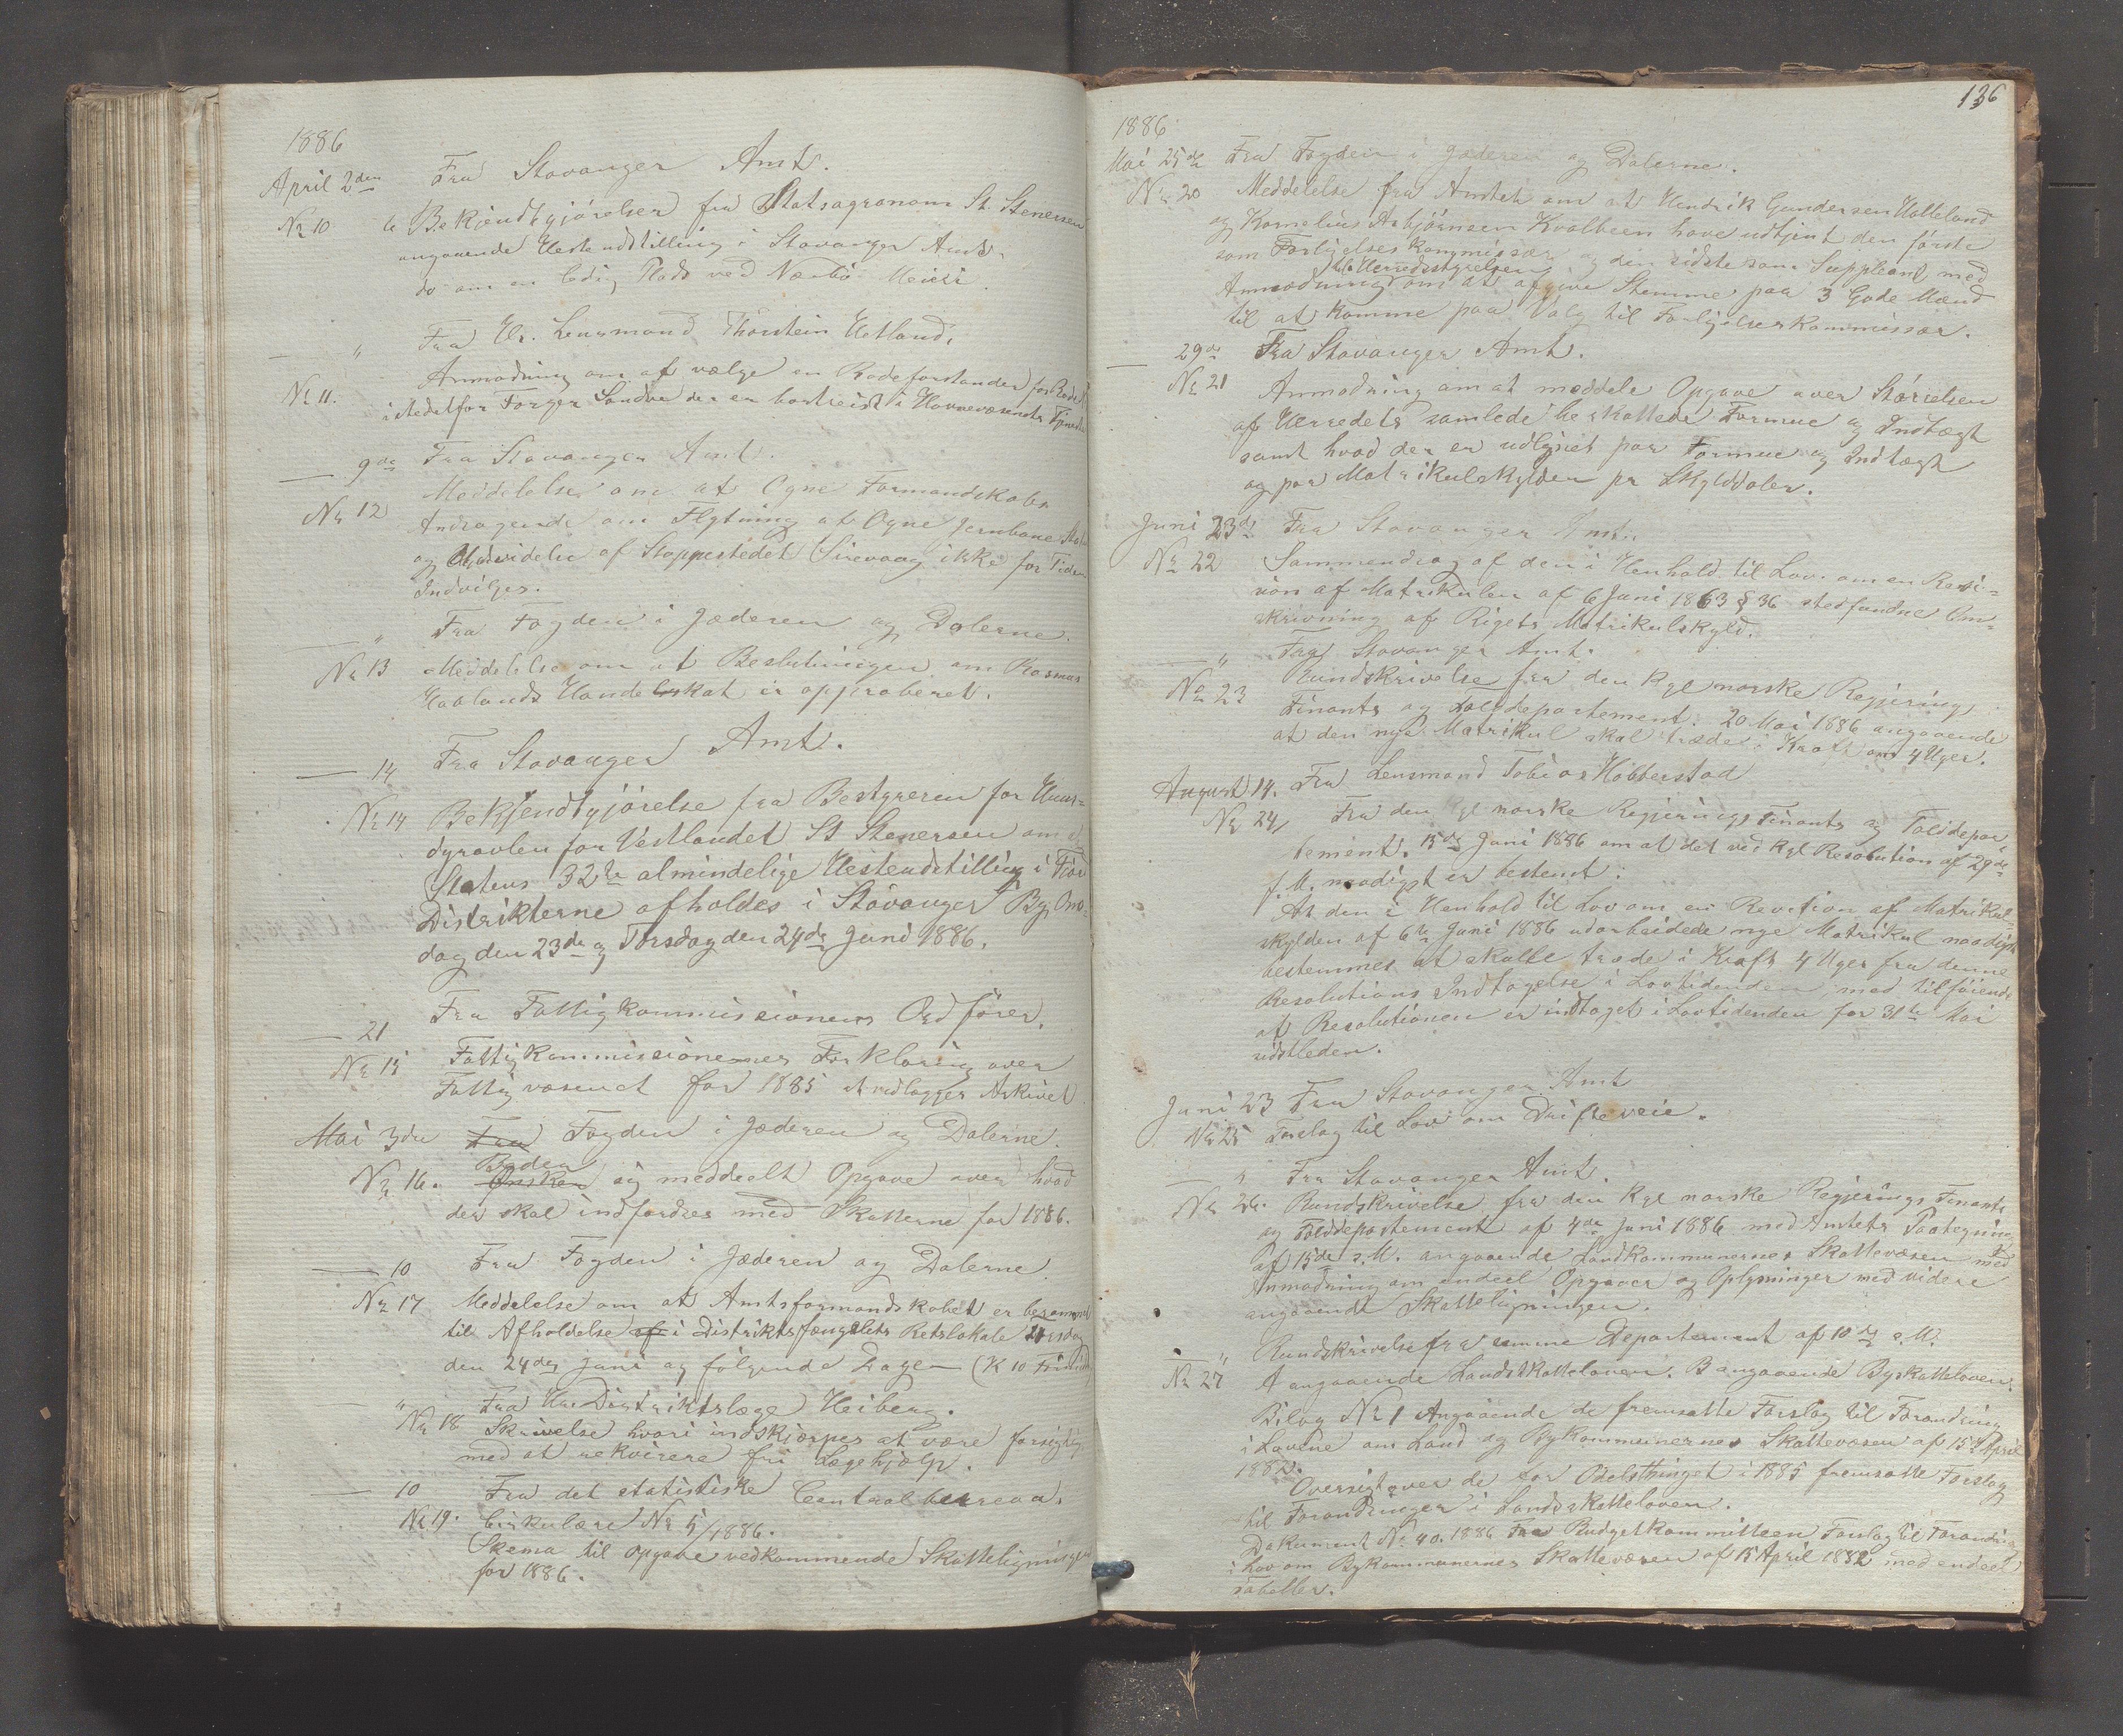 1886
April 2den Fra Stavanger Amt.
Nr 10 6 Bekjendtgjörelser fra Statsagronom St. Stenersen
angaaende Hesteudstilling i Stavanger Amt.
do om en ledig Plads ved Nærbö Meieri.
— " Fra Hr. Lensmand Thorstein Hetland.
Nr 11. Anmodning om at vælge en Rodeforstander for Rode
istedetfor Torger Sandve der er bortreist i Havnevæsenets Tjeneste
— 9de Fra Stavanger Amt.
Nr 12 Meddelelse om at Ogne Formandskabs
Andragende om Flytning af Ogne Jernbane Station
og Udvidelse af Stoppestedet Sirevaag ikke for Tiden
Indvilges.
— " Fra Fogden i Jæderen og Dalerne.
Nr 13 Meddelelse om at Beslutningen om Rasmus
Haalands Handelsskat er approberet.
— 14 Fra Stavanger Amt.
Nr 14 Bekjendtgjörelse fra Bestyreren for Huus-
dyravlen for Vestlandet St Stenersen om at
Statens 32te almindelige Hesteudstilling i Fjord
Distrikterne afholdes i Stavanger By Ons-
dag den 23de og Torsdag den 24de Juni 1886.
— 21 Fra Fattigkommissionens Ordförer.
Nr 15 Fattigkommissionernes Forklaring over
Fattigvæsenet for 1885 at vedlægges Arkivet
Mai 3die Fra Fogden i Jæderen og Dalerne.
Beden
Nr 16. Önsker sig meddeelt Opgave over hvad
der skal indfordres med Skatterne for 1886.
— 10 Fra Fogden i Jæderen og Dalerne.
Nr 17 Meddelelse om at Amtsformandskabet er berammet
til Afholdelse af i Distriktsfængslets Retslokale Torsdag
den 24de Juni og fölgende Dage (K 10 Formid)
" Fra Hr. Distriktslæge Heiberg.
Nr 18 Skrivelse hvori indskjærpes at være forsigtig
med at rekvirere fri Lægehjælp.
— 10 Fra det statistiske Centralbureau.
Nr 19. Cirkulære Nr 5/1886.
Skema til Opgave vedkommende Skatteligningen
for 1886.
136
1886
Mai 25de Fra Fogden i Jæderen og Dalerne.
Nr 20 Meddelelse fra Amtet om at Hendrik Gundersen Hatteland
og Kornelius Asbjörnsen Kvalbeen have udtjent den förste
som Forligelseskommissær og den sidste som Suppleant, med
til Herredsstyrelsen
Anmodning om at afgive Stemme paa 3 Gode Mænd
til at komme paa Valg til Forligelseskommissær.
— 29de Fra Stavanger Amt.
Nr 21 Anmodning om at meddele Opgave over Störrelsen
af Herredets samlede beskattede Formue og Indtægt
samt hvad der er udlignet paa Formue og Indtægt
og paa Matrikulskylden pr Skylddaler.
Juni 23de Fra Stavanger Amt.
Nr 22 Sammendrag af den i Henhold til Lov om en Revi-
sion af Matrikulen af 6 Juni 1863 § 36 stedfundne Om-
skrivning af Rigets Matrikulskyld.
— " Fra Stavanger Amt.
No 23 Rundskrivelse fra den Kgl norske Regjerings
Finants og Tolddepartement. 20 Mai 1886 angaaende
at den nye Matrikul skal træde i Kraft om 4 Uger.
August 14. Fra Lensmand Tobias Hobberstad
Nr 24 Fra den Kgl norske Regjerings Finants og Tolddepar-
tement. 15de Juni 1886 om at det ved Kgl Resolution af 29de
f. M. naadigst er bestemt:
At den i Henhold til Lov om en Revision af Matrikul-
skylden af 6te Juni 1886 udarbeidede nye Matrikul naadigst
bestemmes at skulle træde i Kraft 4 Uger fra denne
Resolutions Indtagelse i Lovtidenden, med tilföiende
at Resolutionen er indtaget i Lovtidenden for 31te Mai
sidstleden.
Juni 23 Fra Stavanger Amt
Nr 25 Forslag til Lov om Drifteveie.
— " Fra Stavanger Amt.
Nr 26. Rundskrivelse fra den Kgl norske Regjerings Finants
og Tolddepartement af 4de Juni 1886 med Amtets Paategning
af 15de s. M. angaaende Landkommunernes Skattevæsen med
Anmodning om endeel Opgaver og Oplysninger med videre
angaaende Skatteligningen.
— " Rundskrivelse fra samme Departement af 10de s. M.
Nr 27 A angaaende Landsskatteloven. B angaaende Byskatteloven.
Bilag Nr 1 Angaaende de fremsatte Forslag til Forandring
i Lovene om Land og Bykommunernes Skattevæsen af 15de April
1882.
Oversigt over de for Odelsthinget i 1885 fremsatte Forslag
til Forandringer i Landsskatteloven.
Dokument Nr 40. 1886 Fra Budgetkommitteen Forslag til Forandring
i Lov om Bykommunernes Skattevæsen af 15 April 1882 med endeel
Tabeller.